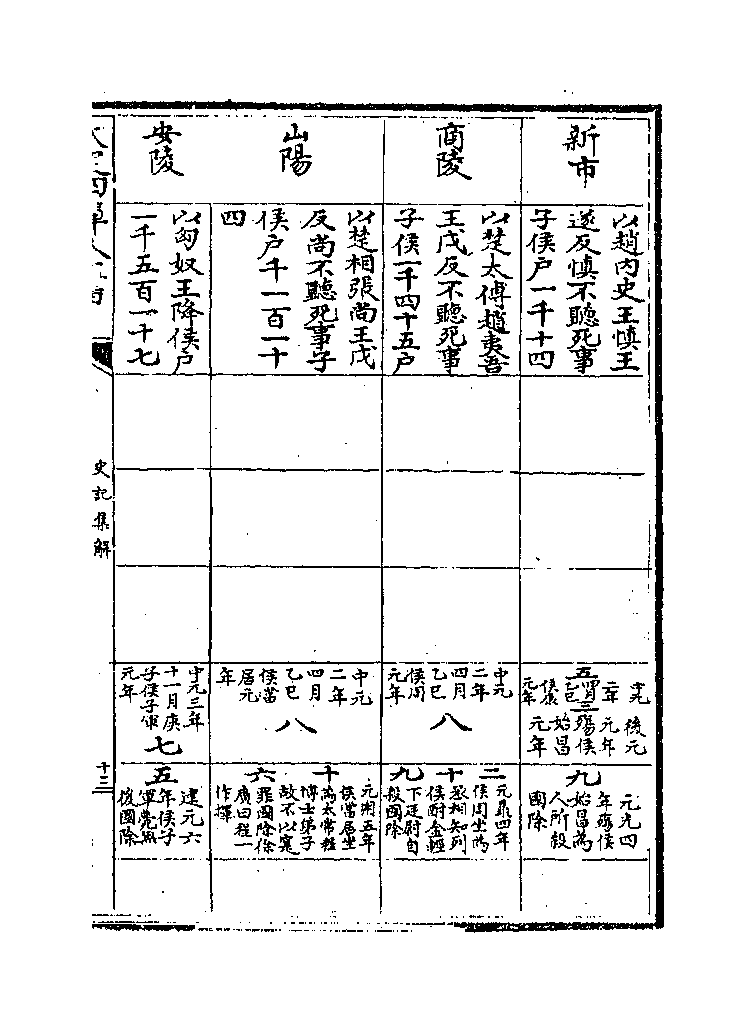 新市
以趙内史王慎王
遂反慎不聽死事
子侯户一千十四
中元
二年
五
四月
乙巳
侯康
元年
三
後元
元年
殤侯
始昌
元年
九
元光四
年殤侯
始昌為
人所殺
國除
商陵
以楚太傅趙夷吾
王戊反不聽死事
子侯一千四十五户
中元
二年
四月
乙巳
侯周
元年
八
二十九
元鼎四年
侯周坐為
丞相知列
侯酎金輕
下廷尉自
殺國除
山陽
以楚相張尚王戊
反尚不聽死事子
侯户千一百一十
四
中元
二年
四月
乙巳
侯當
居元
年
八
十六
元朔五年
侯當居坐
為太常程
博士弟子
故不以寔
罪國除徐
廣曰程一
作擇
安陵
以匈奴王降侯户
一千五百一十七
中元三年
十一月庚
子侯子軍
元年
七
五
建元六
年侯子
軍薨無
後國除
史記集解
十三